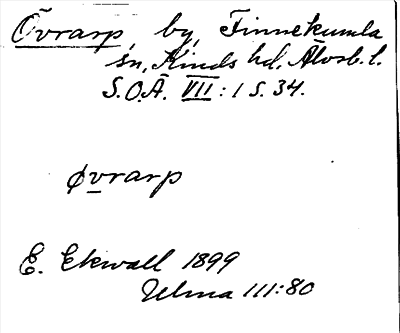 Övrarp by, Finnekumla
sn, Kinds hd. Älvsb. l.
S.O.Ä. VII: 1 S. 34.
ø̱vrarp
E. Ekwall 1899
Ulma 111:80